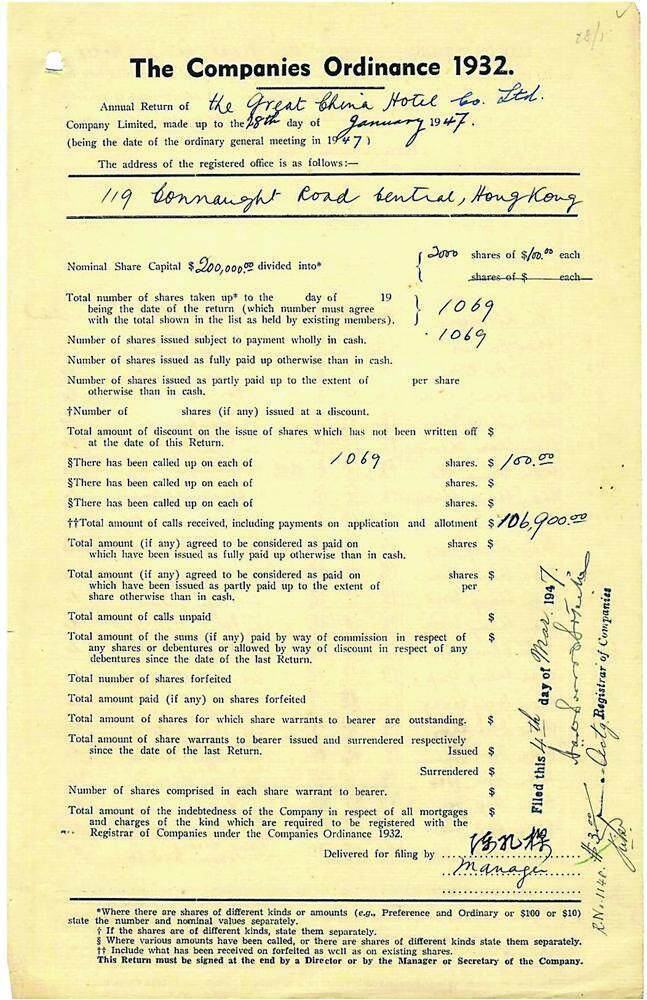 28/1
The Companies Ordinance 1932.
Annual Return of the Great China Hotel Co. Ltd.
Company Limited, made up to the 28th day of January 1947.
(being the date of the ordinary general meeting in 1947)
The address of the registered office is as follows:—
119 Connaught Road Central, Hong Kong
Nominal Share Capital $200,000.00 divided into* { 2000 shares of $100.00 each
shares of $ each
Total number of shares taken up* to the day of 19
being the date of the return (which number must agree } 1069
with the total shown in the list as held by existing members).
Number of shares issued subject to payment wholly in cash. 1069
Number of shares issued as fully paid up otherwise than in cash.
Number of shares issued as partly paid up to the extent of per share
otherwise than in cash.
†Number of shares (if any) issued at a discount.
Total amount of discount on the issue of shares which has not been written off $
at the date of this Return.
§There has been called up on each of 1069 shares. $ 100.00
§There has been called up on each of shares. $
§There has been called up on each of shares. $
††Total amount of calls received, including payments on application and allotment $ 106,900.00
Total amount (if any) agreed to be considered as paid on shares $
which have been issued as fully paid up otherwise than in cash.
Total amount (if any) agreed to be considered as paid on shares $
which have been issued as partly paid up to the extent of per
share otherwise than in cash.
Total amount of calls unpaid $
Total amount of the sums (if any) paid by way of commission in respect of $
any shares or debentures or allowed by way of discount in respect of any
debentures since the date of the last Return.
Total number of shares forfeited
Total amount paid (if any) on shares forfeited
Total amount of shares for which share warrants to bearer are outstanding. $
Total amount of share warrants to bearer issued and surrendered respectively
since the date of the last Return. Issued $
Surrendered $
Number of shares comprised in each share warrant to bearer. $
Total amount of the indebtedness of the Company in respect of all mortgages $
and charges of the kind which are required to be registered with the
Registrar of Companies under the Companies Ordinance 1932.
Delivered for filing by
Manager
Filed this 4th day of Mar. 1947.
Actg. Registrar of Companies
*Where there are shares of different kinds or amounts (e.g., Preference and Ordinary or $100 or $10)
state the number and nominal values separately.
† If the shares are of different kinds, state them separately.
§ Where various amounts have been called, or there are shares of different kinds state them separately.
†† Include what has been received on forfeited as well as on existing shares.
This Return must be signed at the end by a Director or by the Manager or Secretary of the Company.